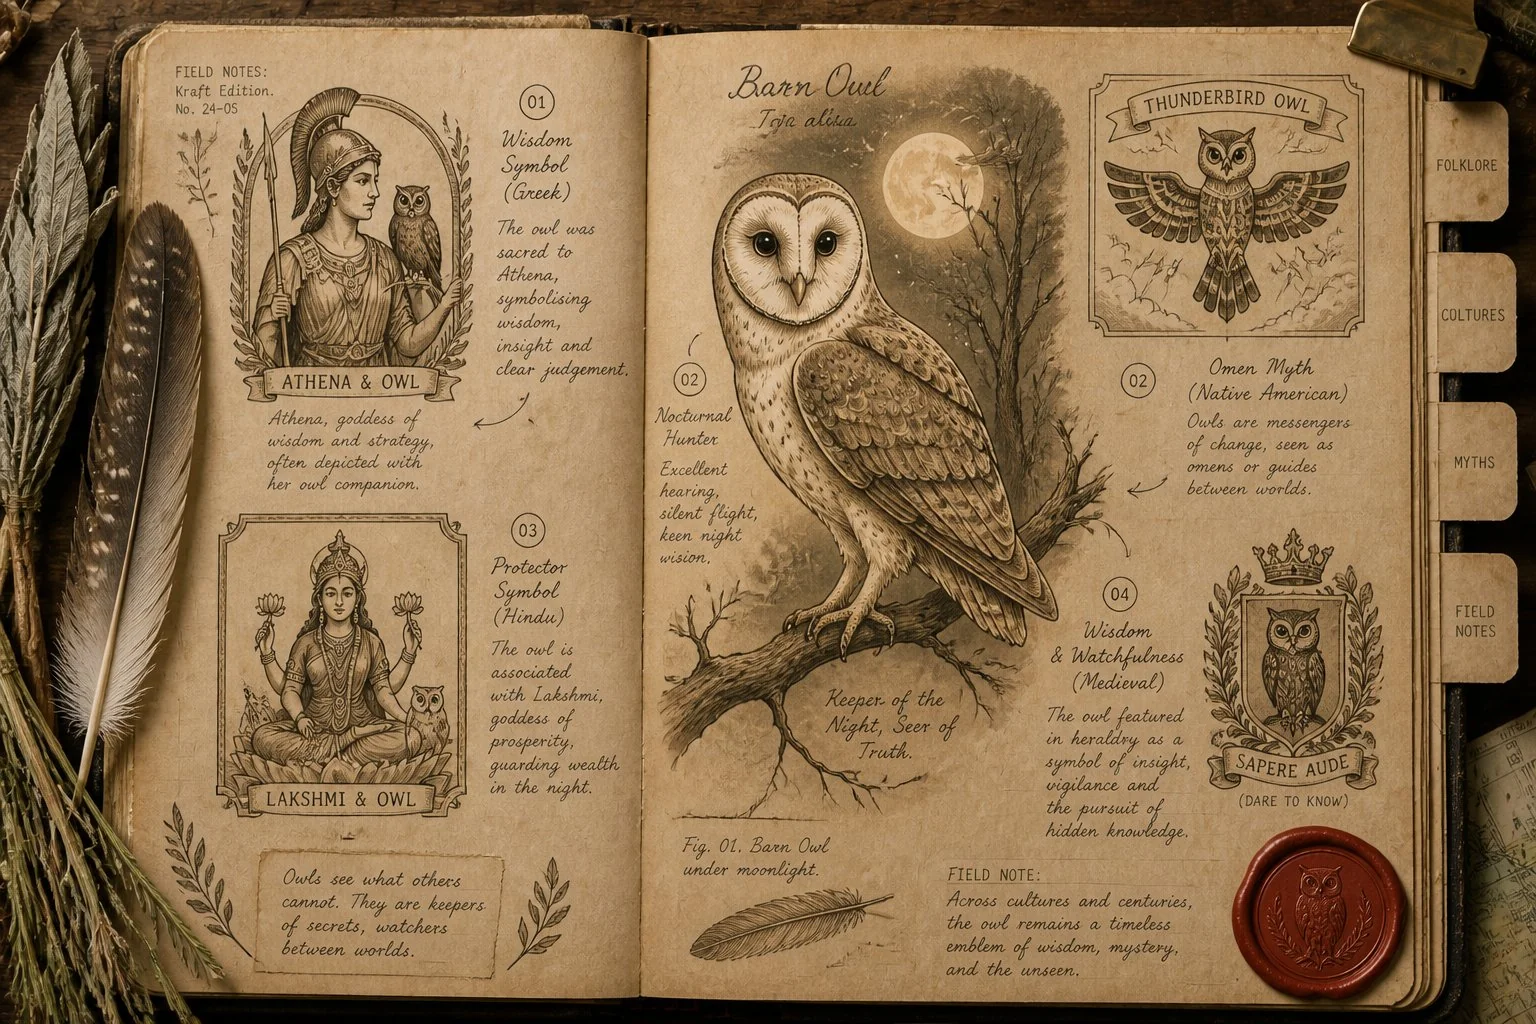 FIELD NOTES:
Kraft Edition.
No. 24-OS
01
Wisdom
Symbol
(Greek)
The owl was
sacred to
Athena,
symbolising
wisdom,
insight and
clear judgement.
ATHENA & OWL
Athena, goddess of
wisdom and strategy,
often depicted with
her owl companion.
03
Protector
Symbol
(Hindu)
The owl is
associated
with Lakshmi,
goddess of
prosperity,
guarding wealth
in the night.
LAKSHMI & OWL
Owls see what others
cannot. They are keepers
of secrets, watchers
between worlds.
Barn Owl
02
Nocturnal
Hunter
Excellent
hearing,
silent flight,
keen night
wision.
Keeper of the
Night, Seer of
Truth.
Fig. 01. Barn Owl
under moonlight.
THUNDERBIRD OWL
02
Omen Myth
(Native American)
Owls are messengers
of change, seen as
omens or guides
between worlds.
04
Wisdom
& Watchfulness
(Medieval)
The owl featured
in heraldry as a
symbol of insight,
vigilance and
the pursuit of
hidden knowledge.
SAPERE AUDE
(DARE TO KNOW)
FIELD NOTE:
Across cultures and centuries,
the owl remains a timeless
emblem of wisdom, mystery,
and the unseen.
FOLKLORE
COLTURES
MYTHS
FIELD
NOTES